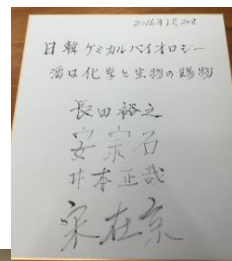 2016年1月20日
日韓ケミカルバイオロジー
酒は化学と生物の賜物
長田裕之
安宗石
井本正哉
宋在京